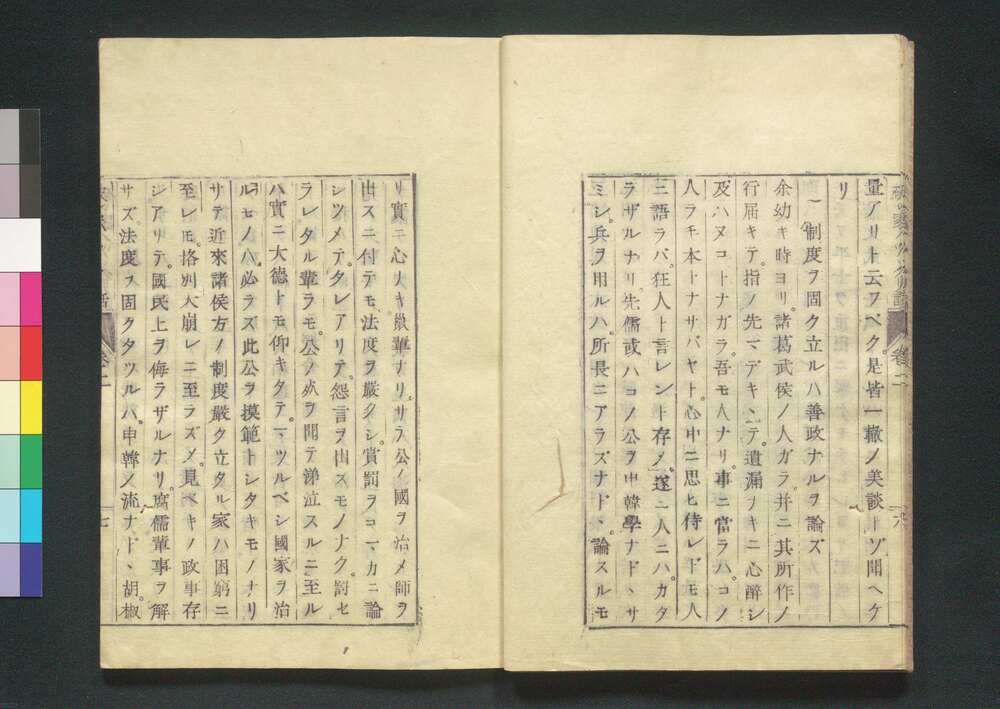 量アリト云フベク。是皆一轍ノ美談トゾ聞ヘケ
リ
一 制度ヲ固ク立ルハ善政ナルヲ論ズ
余幼キ時ヨリ。諸葛武侯ノ人ガラ。并ニ其所作ノ
行届キテ。指ノ先マデキヽテ。遺漏ナキニ心醉シ
及ハヌコトナガラ。吾モ人ナリ。事ニ當ラハ。コノ
人ヲモ本トナサバヤト。心中ニ思ヒ侍レドモ人
ニ語ラバ。狂人ト言レント存〆。遂ニ人ニハカタ
ラザルナリ。先儒或ハコノ公ヲ申韓學ナドヽサ
ミシ。兵ヲ用ルハ。所長ニアラズナドヽ論スルモ
卷二
六
リ實ニ心ナキ漢輩ナリ。サラ公ノ國ヲ治メ師ヲ
出スニ付テモ。法度ヲ嚴クシ。賞罰ヲコマカニ論
シツメテ。タレアリテ。怨言ヲ出スモノナク。罰セ
ラレタル輩ラモ。公ノ死ヲ聞テ涕泣スルニ至ル
ハ實ニ大德トモ仰キタテマツルベシ國家ヲ治
ルモノハ。必ラズ此公ヲ摸範トシタキモノナリ
サテ近來諸侯方ノ制度嚴ク立タル家ハ困窮ニ
至レモ。格別大崩レニ至ラズ〆。見ベキノ政事存
シアリテ。國民上ヲ侮ラザルナリ。腐儒輩事ヲ解
サズ法度ヲ固クタツルハ。申韓ノ流ナドヽ胡椒
卷二
七